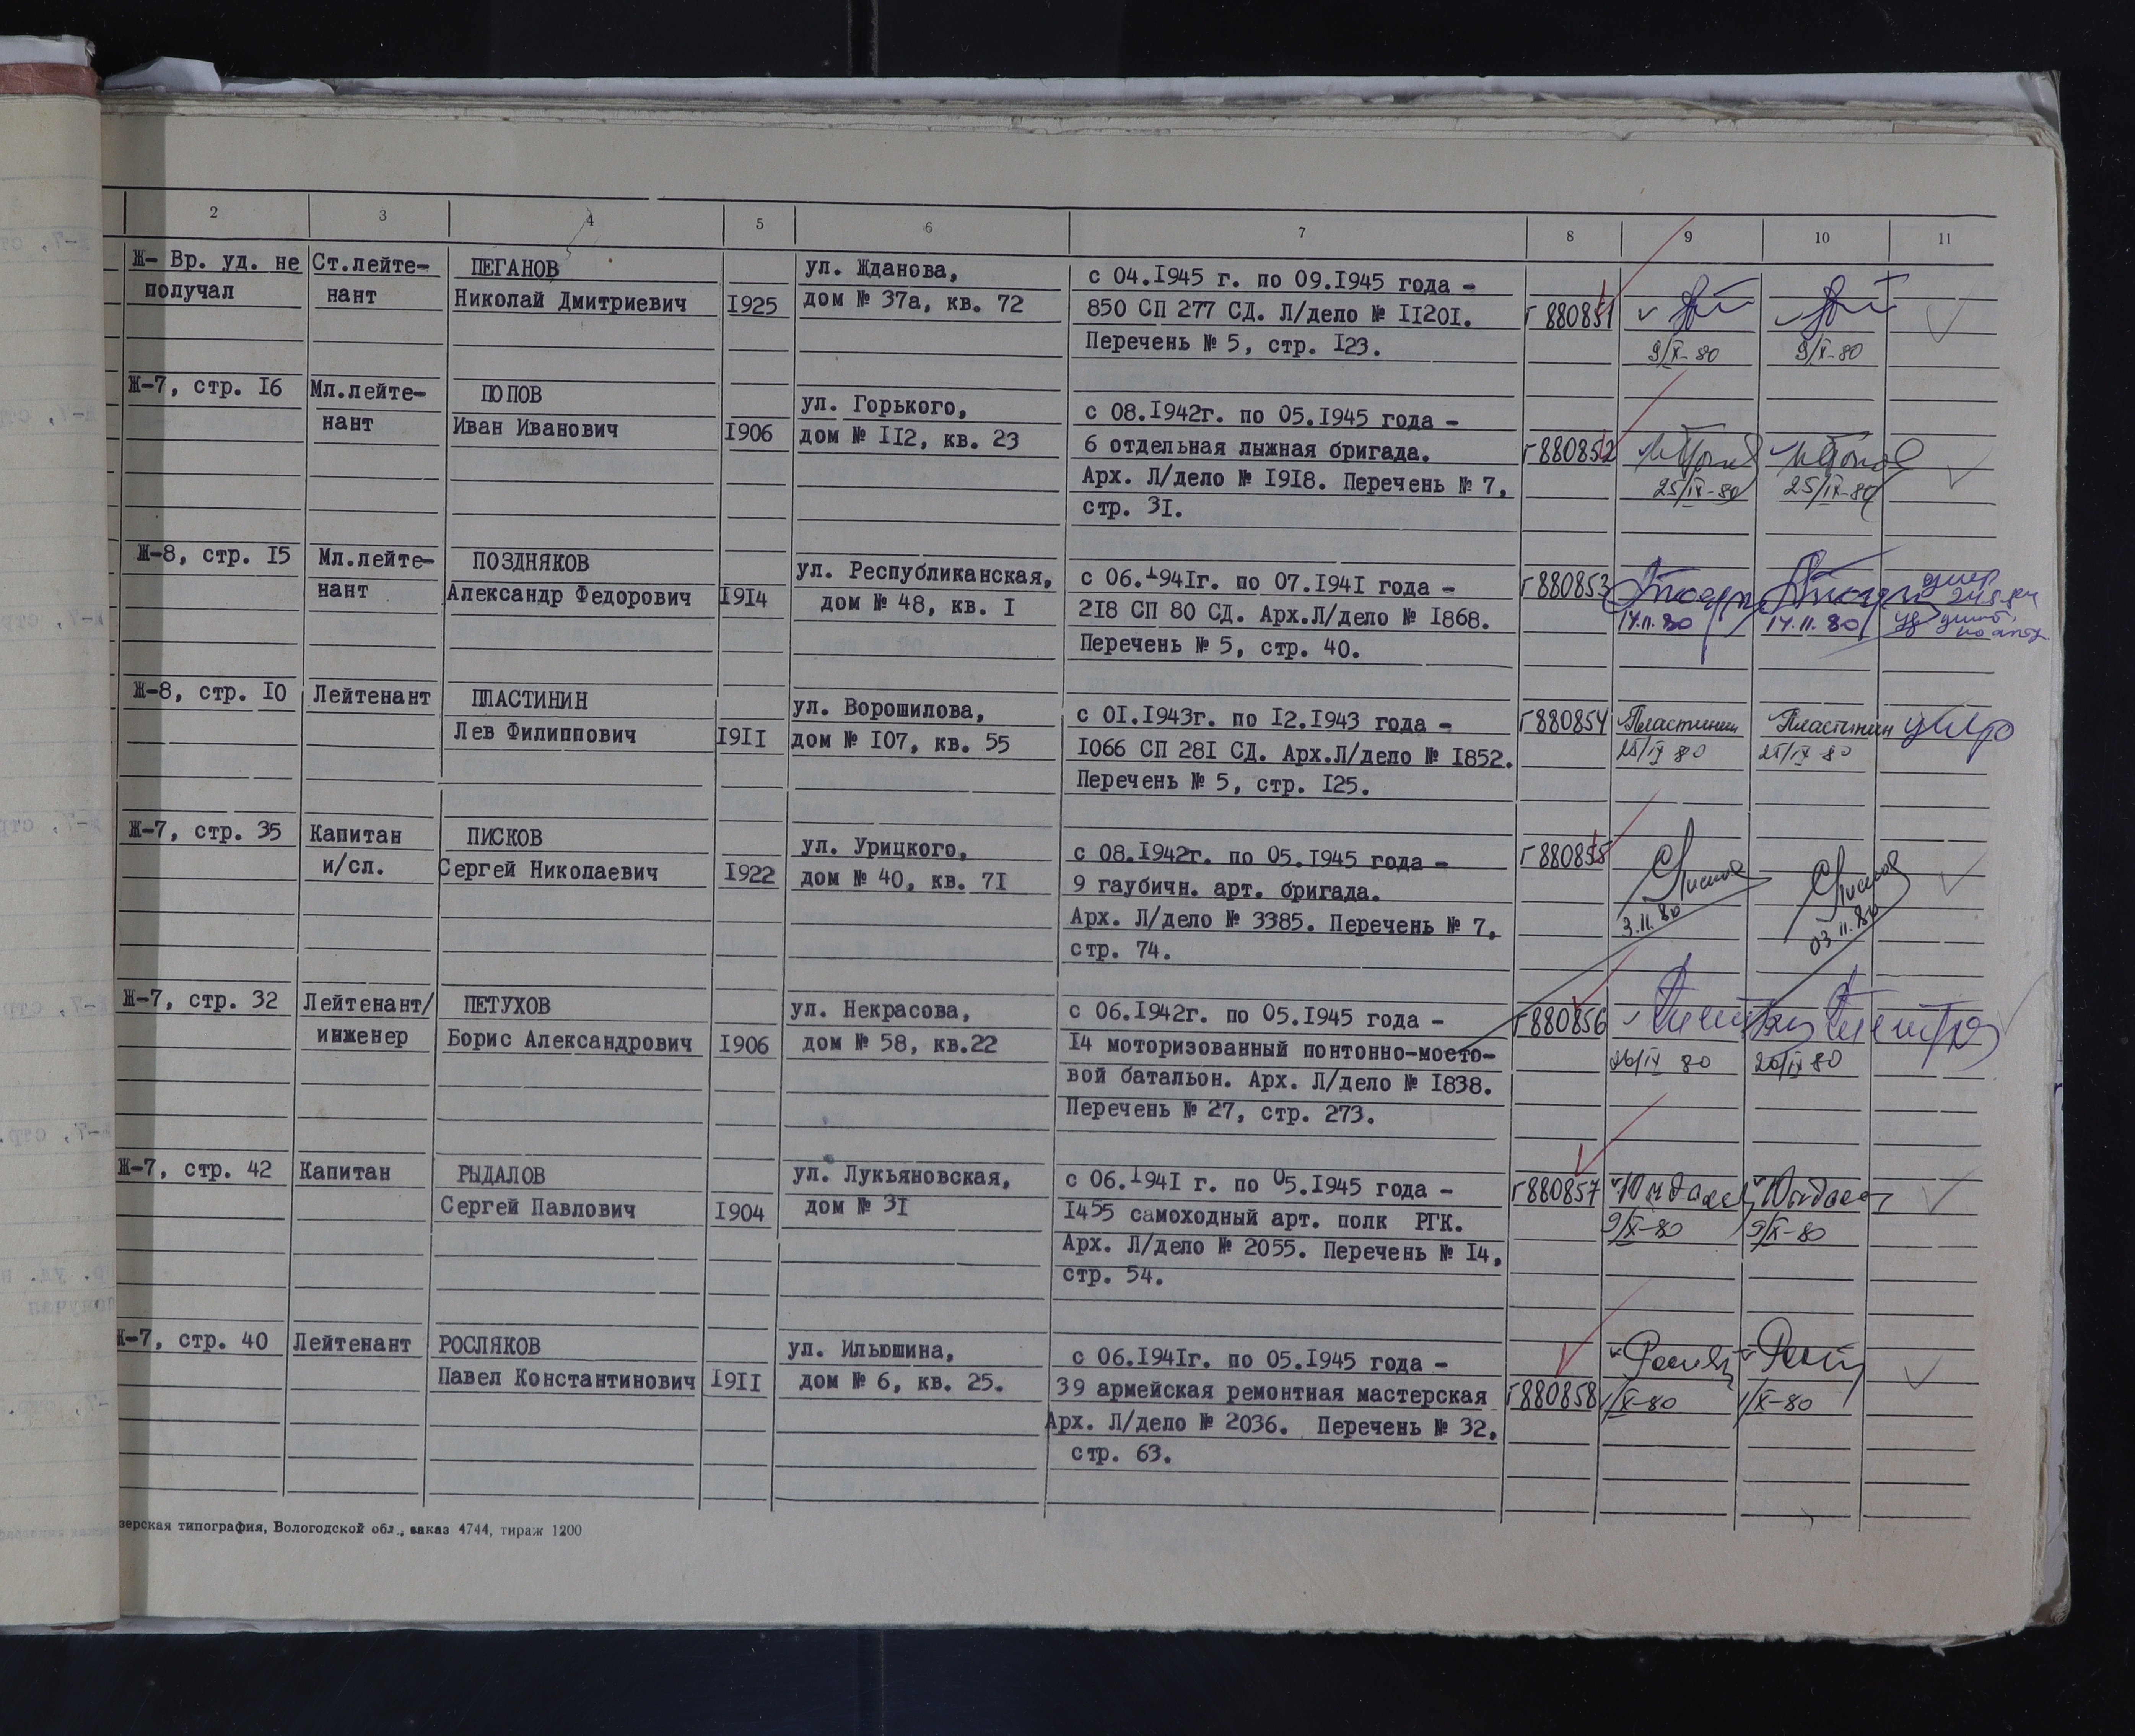 2 3 4 5 6 7 8 9 10 11
Ж- Вр. уд. не получал
Ст.лейте-
нант
ПЕГАНОВ
Николай Дмитриевич
1925
ул. Жданова,
дом № 37а, кв. 72
с 04.1945 г. по 09.1945 года -
850 СП 277 СД. Л/дело № 11201.
Перечень № 5, стр. 123.
Г 880851
9/X-80
9/X-80
Ж-7, стр. 16
Мл.лейте-
нант
ПОПОВ
Иван Иванович
1906
ул. Горького,
дом № 112, кв. 23
с 08.1942г. по 05.1945 года -
6 отдельная лыжная бригада.
Арх. Л/дело № 1918. Перечень № 7,
стр. 31.
Г880852
25/IX-80
25/IX-80
Ж-8, стр. 15
Мл.лейте-
нант
ПОЗДНЯКОВ
Александр Федорович
1914
ул. Республиканская,
дом № 48, кв. 1
с 06.1941г. по 07.1941 года -
218 СП 80 СД. Арх.Л/дело № 1868.
Перечень № 5, стр. 40.
Г880853
14.11.80
14.11.80
Ж-8, стр. 10
Лейтенант
ПЛАСТИНИН
Лев Филиппович
1911
ул. Ворошилова,
дом № 107, кв. 55
с 01.1943г. по 12.1943 года -
1066 СП 281 СД. Арх.Л/дело № 1852.
Перечень № 5, стр. 125.
Г880854
Пластинин
25/IX 80
Пластинин
25/IX 80
умер
Ж-7, стр. 35
Капитан
и/сл.
ПИСКОВ
Сергей Николаевич
1922
ул. Урицкого,
дом № 40, кв. 71
с 08.1942г. по 05.1945 года -
9 гаубичн. арт. бригада.
Арх. Л/дело № 3385. Перечень № 7,
стр. 74.
Г880855
3.11.80
03.11.80
Ж-7, стр. 32
Лейтенант/
инженер
ПЕТУХОВ
Борис Александрович
1906
ул. Некрасова,
дом № 58, кв.22
с 06.1942г. по 05.1945 года -
14 моторизованный понтонно-мосто-
вой батальон. Арх. Л/дело № 1838.
Перечень № 27, стр. 273.
Г880856
26/IX 80
26/IX 80
Ж-7, стр. 42
Капитан
РЫДАЛОВ
Сергей Павлович
1904
ул. Лукьяновская,
дом № 31
с 06.1941 г. по 05.1945 года -
1455 самоходный арт. полк РГК.
Арх. Л/дело № 2055. Перечень № 14,
стр. 54.
Г880857
9/X-80
9/X-80
Ж-7, стр. 40
Лейтенант
РОСЛЯКОВ
Павел Константинович
1911
ул. Ильюшина,
дом № 6, кв. 25.
с 06.1941г. по 05.1945 года -
39 армейская ремонтная мастерская
Арх. Л/дело № 2036. Перечень № 32,
стр. 63.
Г880858
1/X-80
1/X-80
зерская типография, Вологодской обл., заказ 4744, тираж 1200